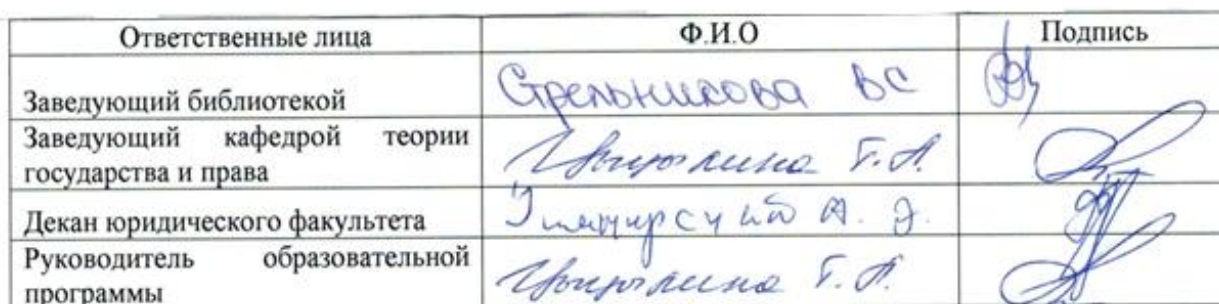 Ответственные лица Ф.И.О Подпись
Заведующий библиотекой Стрельникова ВС
Заведующий кафедрой теории
государства и права Г.А.
Декан юридического факультета А. Э.
Руководитель образовательной
программы Г.А.